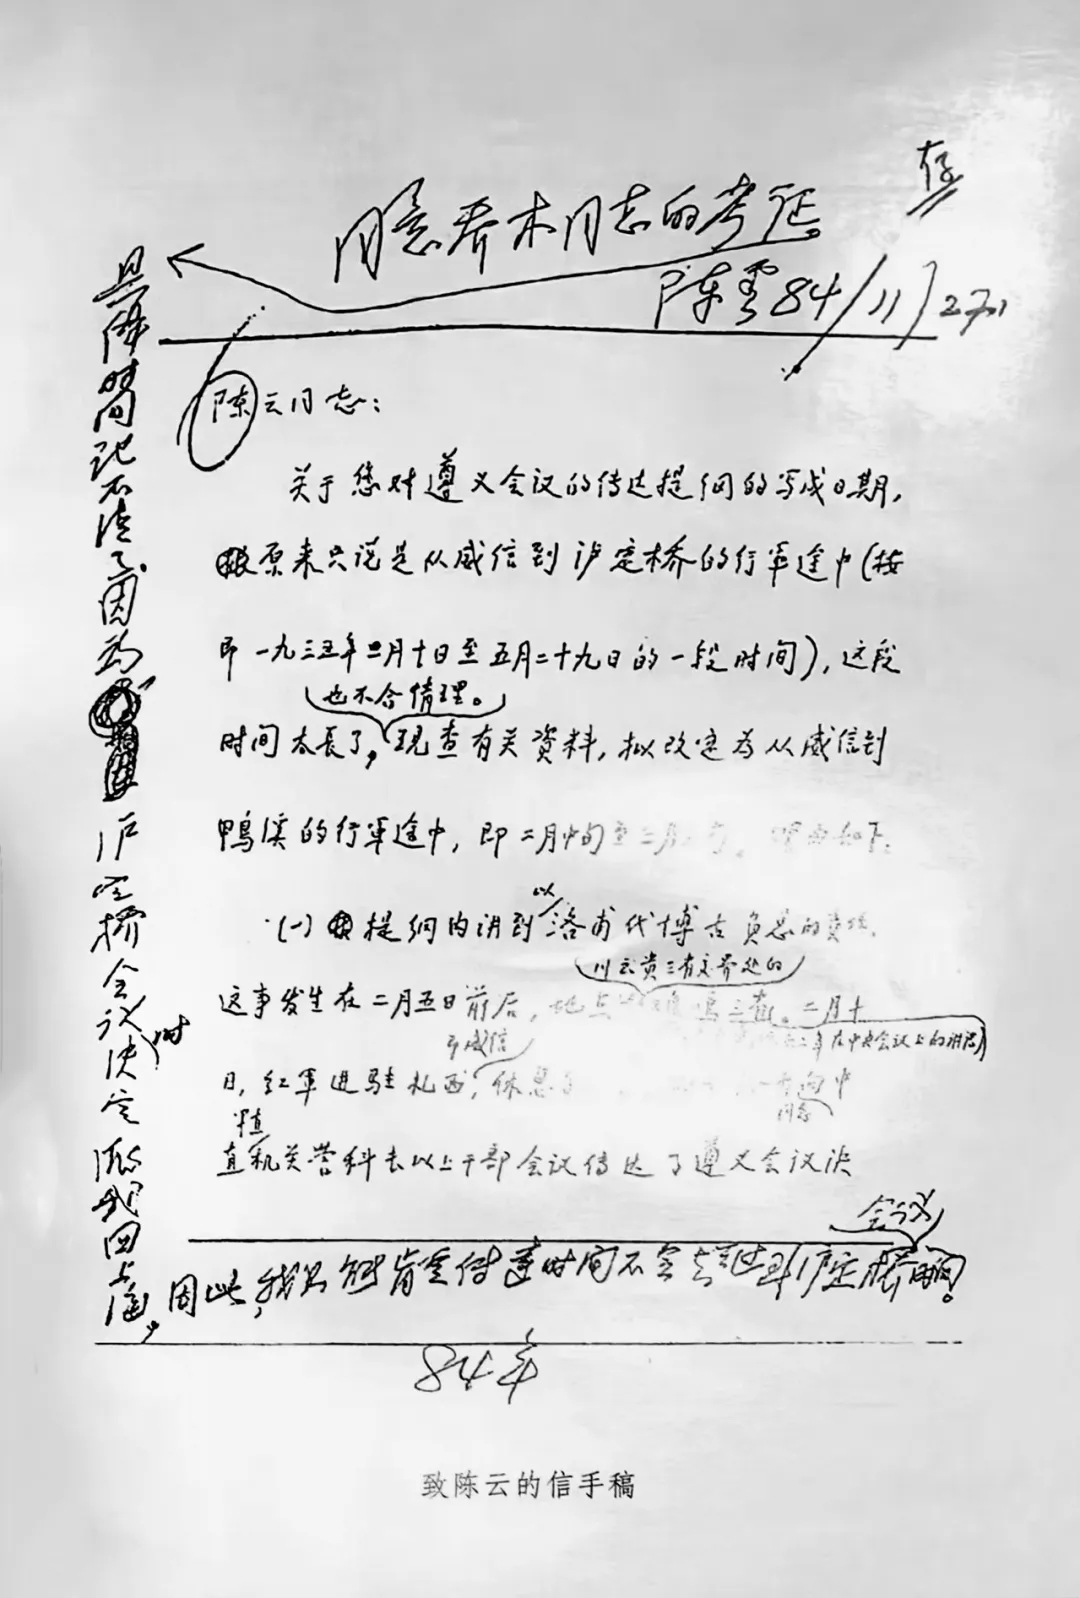 存
同意乔木同志的考证。
陈云 84/11/27日
具体时间记不清了,因为
泸定桥会议决定
时
派我回上海,
陈云同志:
关于您对遵义会议的传达提纲的写成日期,
原来只说是从威信到泸定桥的行军途中(按
即一九三五年二月十日至五月二十九日的一段时间),这段
也不合情理。
时间太长了,现查有关资料,拟改定为从威信到
鸭溪的行军途中,即二月中旬至三月 如下。
以
(一)提纲内讲到洛甫代博古负总的责
川云贵三省交界处的
这事发生在二月五日前后,地点 鸣三省。二月十
年在中央会议上的讲话)
于威信
日,红军进驻扎西,休息 向中
直机关营科长以上干部会议传达了遵义会议决
会议
因此,我只能肯定传达时间不会超过到泸定桥
84年
致陈云的信手稿